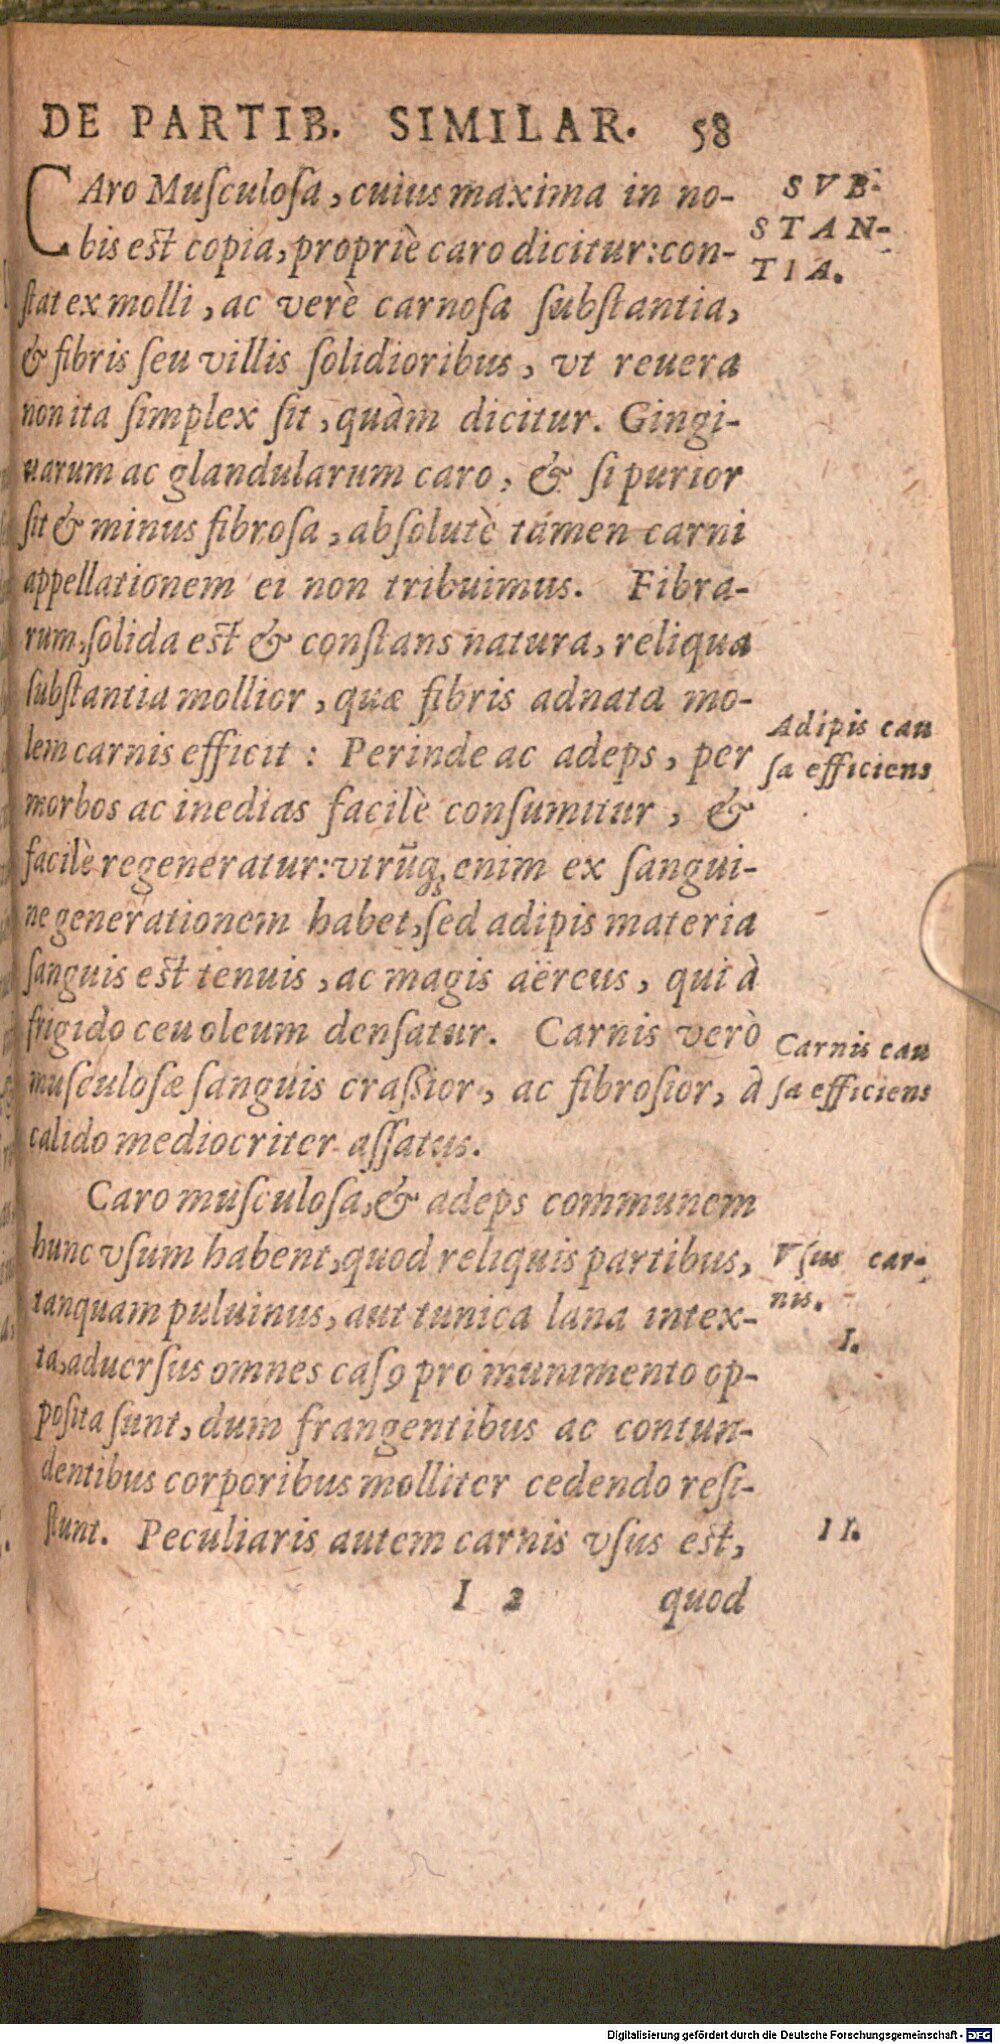 DE PARTIB. SIMILAR. 58
CAro Muſculoſa, cuius maxima in no-
bis est copia, propriè caro dicitur: con-
ſtat ex molli, ac verè carnoſa ſubſtantia,
& fibris ſeu villis ſolidioribus, vt reuera
non ita ſimplex ſit, quàm dicitur. Gingi-
uarum ac glandularum caro, & ſi purior
ſit & minus fibroſa, abſolutè tamen carni
appellationem ei non tribuimus. Fibra-
rum, ſolida est & conſtans natura, reliqua
ſubſtantia mollior, quæ fibris adnata mo-
lem carnis efficit : Perinde ac adeps, per
morbos ac inedias facilè conſumitur, &
facilè regeneratur: vtrūq; enim ex ſangui-
ne generationem habet, ſed adipis materia
ſanguis est tenuis, ac magis aëreus, qui à
frigido ceu oleum denſatur. Carnis verò
muſculoſæ ſanguis craßior, ac fibroſior, à
calido mediocriter aſſatus.
Caro muſculoſa, & adeps communem
hunc vſum habent, quod reliquis partibus,
tanquam puluinus, aut tunica lana intex-
ta, aduerſus omnes caſꝰ pro munimento op-
poſita ſunt, dum frangentibus ac contun-
dentibus corporibus molliter cedendo reſi-
ſtunt. Peculiaris autem carnis vſus est,
I 2 quod
SVB-
STAN-
TIA.
Adipis cau
ſa efficiens
Carnis cau
ſa efficiens
Vſus car-
nis.
I.
II.
Digitalisierung gefördert durch die Deutsche Forschungsgemeinschaft - DFG